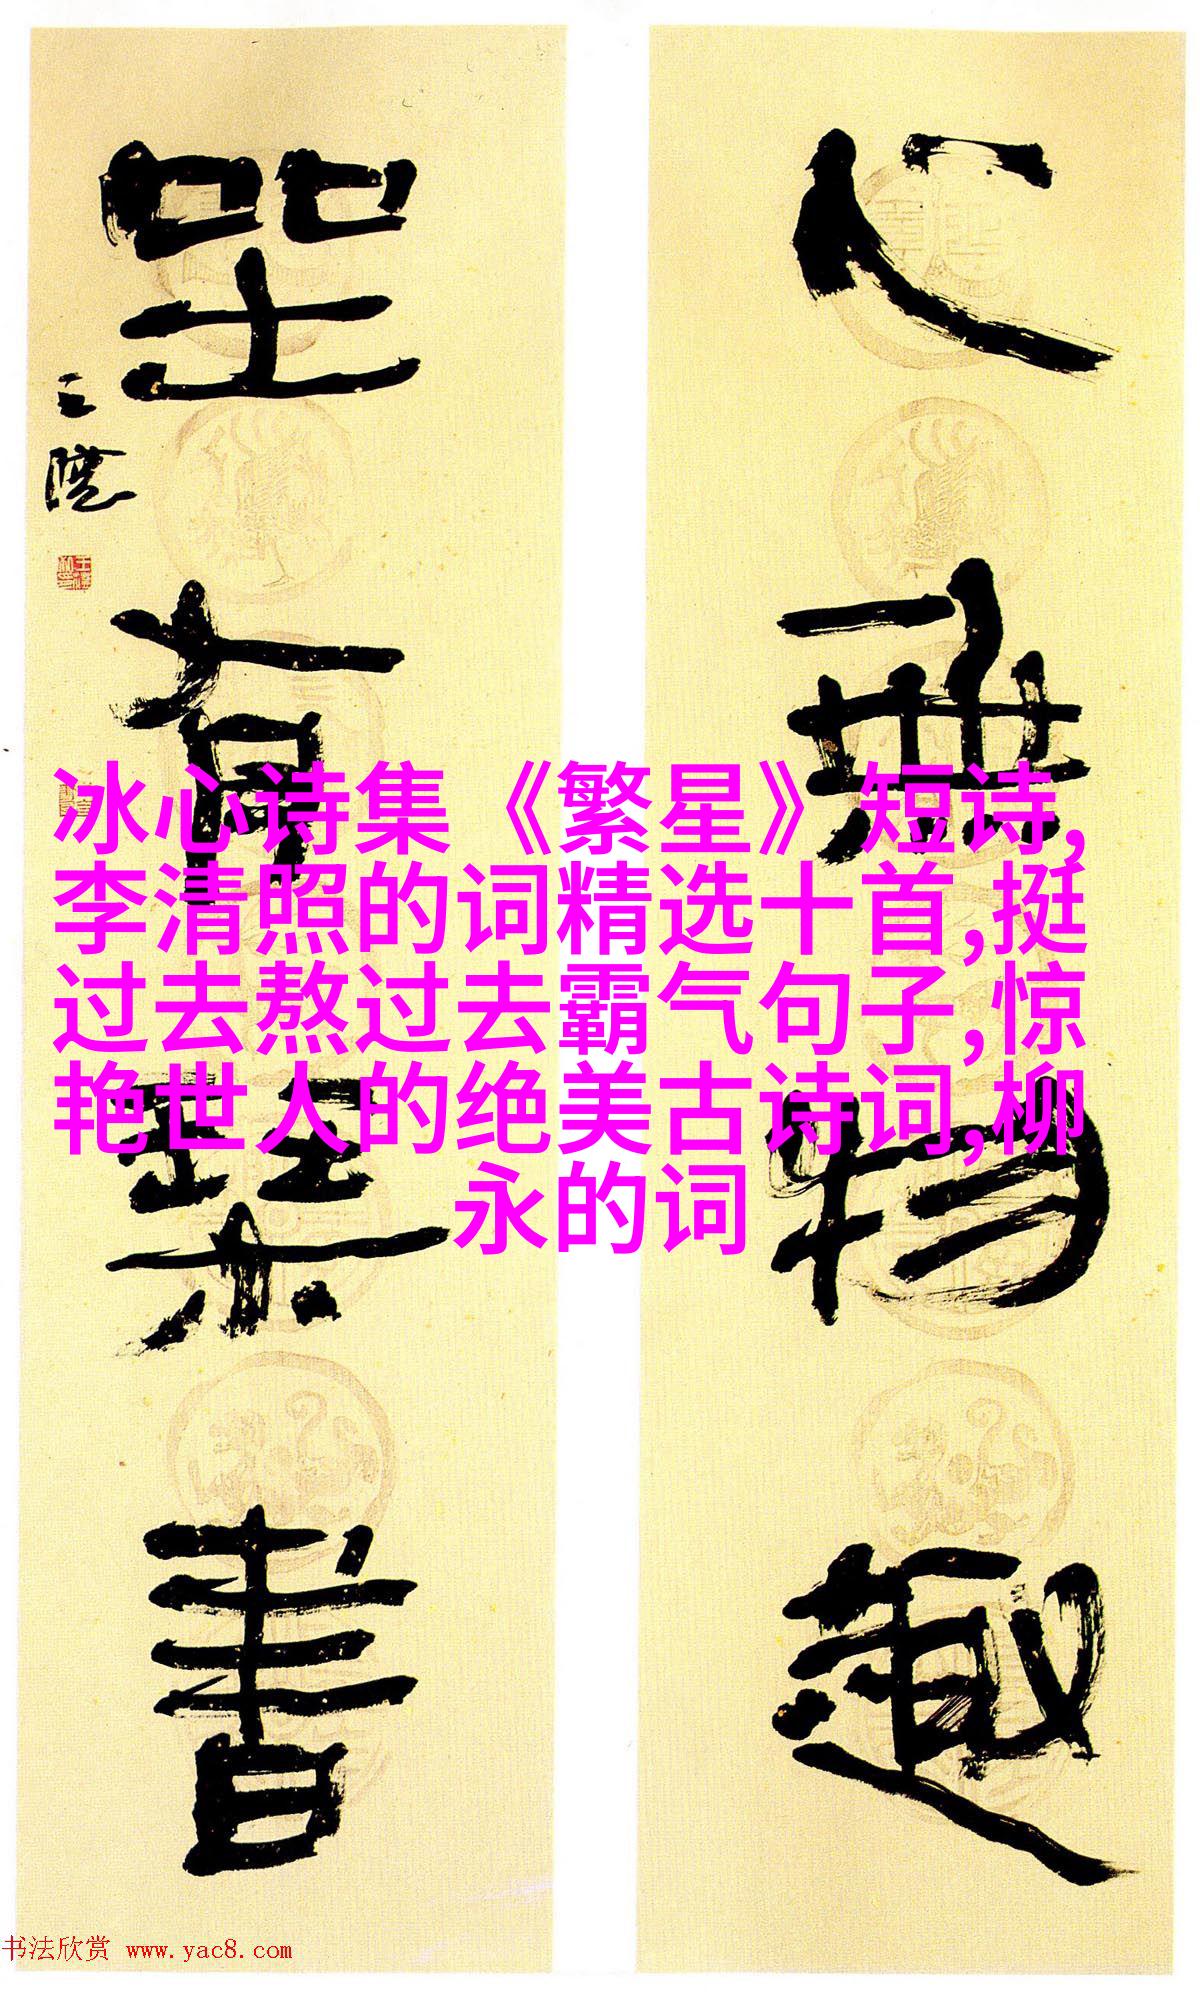 心無物趣
坐有琴書
王镛
冰心诗集《繁星》短诗,
李清照的词精选十首,挺
过去熬过去霸气句子,惊
艳世人的绝美古诗词,柳
永的词
书法欣赏 www.yac8.com